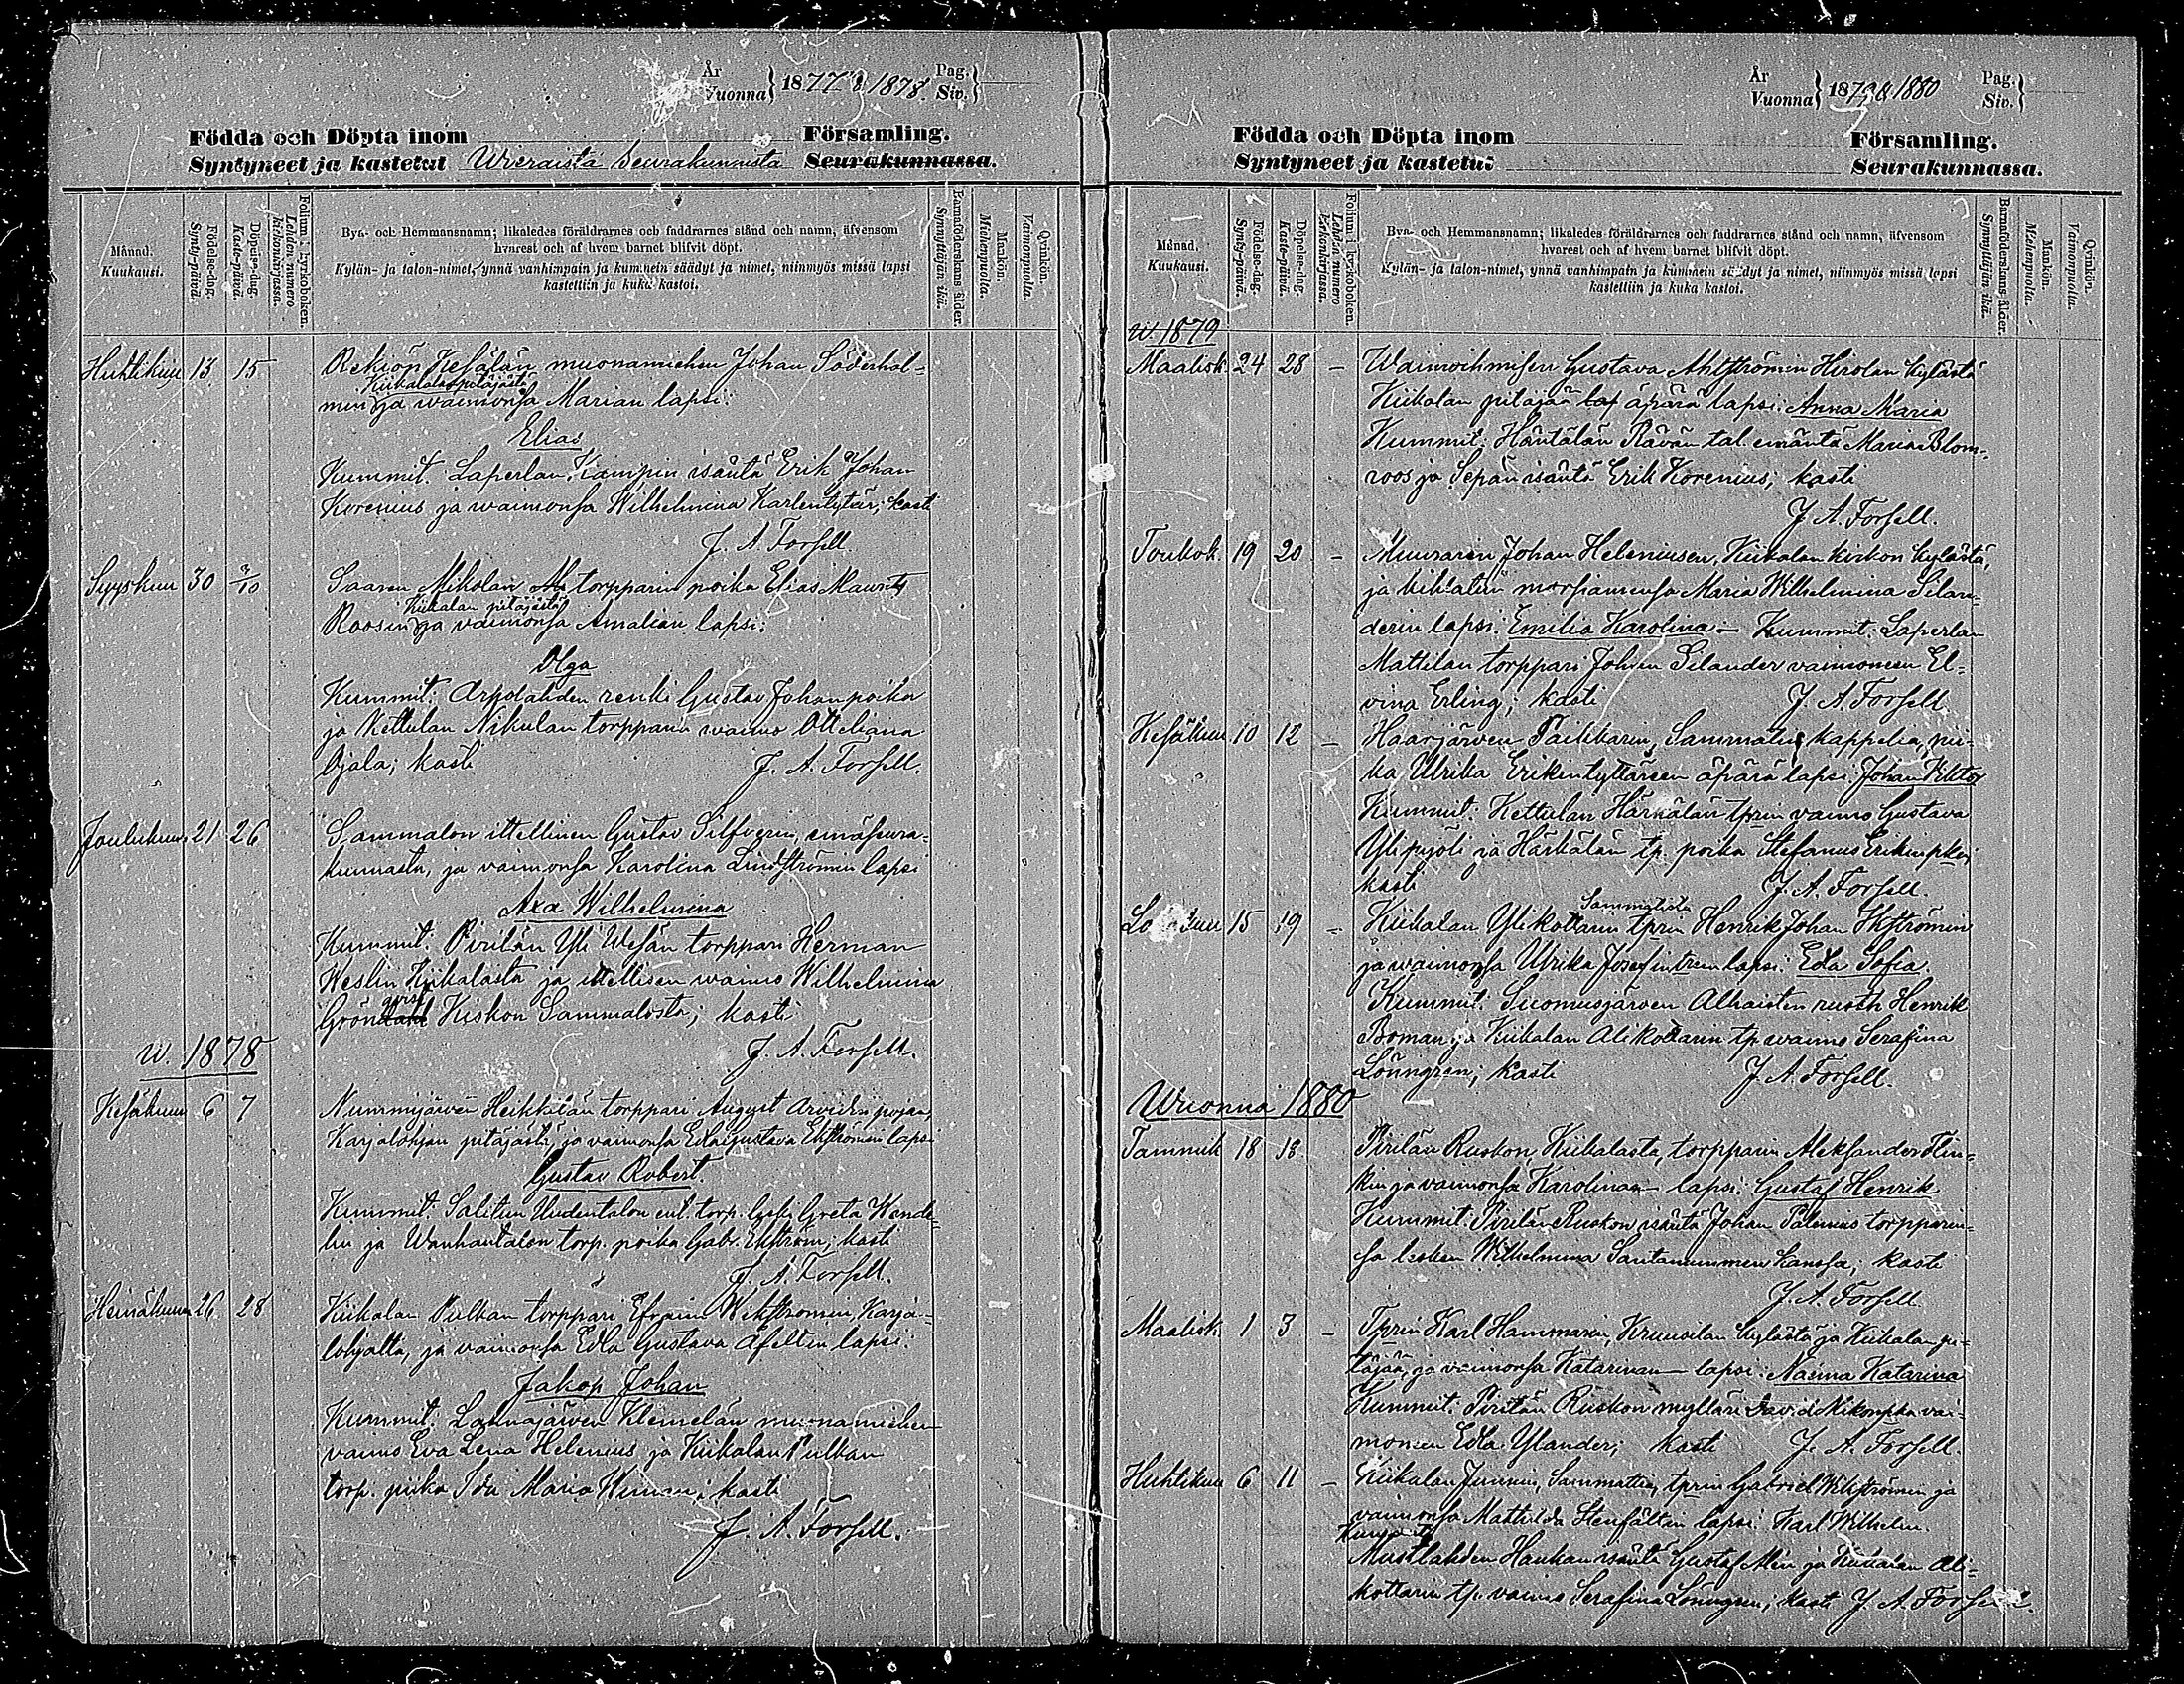 År
Vuonna } 1877 & 1878. Pag.
Siv. }
Födda och Döpta inom Församling.
Syntyneet ja kastetut Wieraista Seurakunnista Seurakunnassa.
Månad.
Kuukausi.
Födelse-dag.
Synty-päivä.
Döpelse-dag.
Kaste-päivä.
Folium i kyrkoboken.
Lehden numero kirkonkirjassa.
Bya- och Hemmansnamn; likaledes föräldrarnes och faddrarnes stånd och namn, äfvensom
hvarest och af hvem barnet blifvit döpt.
Kylän- ja talon-nimet, ynnä vanhimpain ja kummein säädyt ja nimet, niinmyös missä lapsi
kastettiin ja kuka kastoi.
Barnaföderskans ålder.
Synnyttäjän ikä.
Mankön.
Miehenpuolta.
Qvinkön.
Vaimonpuolta.
Huhtikuu 13 15 Rekiön Kesälän muonamiehen Johan Söderhol-
Kiikalan pitäjästä
min ja waimonsa Marian lapsi:
Elias
Kummit. Laperlan Kampin isäntä Erik Johan
Korenius ja waimonsa Wilhelmina Karlentytär; kasti
J. A. Forsell.
Syyskuu 30 3/10 Saaren Mikolan torpparin poika Elias Maurits
Kiikalan pitäjästä
Roosin ja vaimonsa Amalian lapsi:
Olga
Kummit: Arpolahden renki Gustav Johanpoika
ja Kettulan Nikulan torpparin waimo Otteliana
Ojala; kasti J. A. Forsell.
Joulukuu 21 26 Sammalon itellinen Gustav Silfverin, emäseura-
kunnasta, ja vaimonsa Karolina Lindströmin lapsi
Axa Wilhelmina
Kummit: Pirilän Yli Wesän torppari Herman
Weslin Kiikalasta ja itellisen waimo Wilhelmina
qvist
Gröndahl Kiskon Sammalosta; kasti
J. A. Forsell.
w. 1878
Kesäkuu 6 7 Nummijärven Heikkilän torppari August Arvidinpojan,
Karjalohjan pitäjästä, ja vaimonsa Edla Gustava Ekströmin lapsi
Gustav Robert.
Kummit: Salitun Uudentalon ent. torp. leski Greta Wande-
lin ja Wanhantalon torp. poika Gabr. Ekström; kasti
J. A. Forsell.
Heinäkuu 26 28 Kiikalan Pulkan torppari Efraim Wikströmin, Karja-
lohjalta, ja vaimonsa Edla Gustava Afeltin lapsi:
Jakop Johan
Kummit: Lahnajärven Klemelän muonamiehen
vaimo Eva Lena Helenius ja Kiikalan Pulkan
torp. piika Ida Maria Winn; kasti
J. A. Forsell.
År
Vuonna } 1879 & 1880 Pag.
Siv. }
Födda och Döpta inom Församling.
Syntyneet ja kastetut Seurakunnassa.
Månad.
Kuukausi.
Födelse-dag.
Synty-päivä.
Döpelse-dag.
Kaste-päivä.
Folium i kyrkoboken.
Lehden numero kirkonkirjassa.
Bya- och Hemmansnamn; likaledes föräldrarnes och faddrarnes stånd och namn, äfvensom
hvarest och af hvem barnet blifvit döpt.
Kylän- ja talon-nimet, ynnä vanhimpain ja kummein säädyt ja nimet, niinmyös missä lapsi
kastettiin ja kuka kastoi.
Barnaföderskans ålder.
Synnyttäjän ikä.
Mankön.
Miehenpuolta.
Qvinkön.
Vaimonpuolta.
w. 1879
Maalisk. 24 28 – Waimoihmisen Gustava Ahlströmin Hirolan kylästä
Kiikalan pitäjää lap äpärä lapsi: Anna Maria
Kummit: Häntälän Rävän tal. emäntä Maria Blom-
roos ja Sepän isäntä Erik Korenius; kasti
J. A. Forsell.
Toukok. 19 20 – Muurarin Johan Heleniusen, Kiikalan kirkon kylästä,
ja kihlatun morsiamensa Maria Wilhelmina Silan-
derin lapsi: Emilia Karolina – Kummit: Laperlan
Mattilan torppari Johan Silander vaimoneen El-
vina Erling; kasti J. A. Forsell
Kesäkuu 10 12 – Haarjärven Pailikarin, Sammatin kappelia, pii-
ka Ulrika Erikintyttären äpärä lapsi: Johan Viktor
Kummit: Kettulan Härkälän tprin vaimo Gustava
Ylipyöli ja Härkälän tp. poika Stefanus Erikinpka;
kasti J. A. Forsell.
Sammatista
15 19 – Kiikalan Ylikottarin tprin Henrik Johan Ekströmin
ja vaimonsa Ulrika Josefintrin lapsi: Edla Sofia.
Kummit: Suomusjärven Alhaisten rusth. Henrik
Boman ja Kiikalan Alikottarin tp. waimo Serafina
Lönngren; kasti J. A. Forsell.
Wuonna 1880
Tammik 18 18 Pirilän Ruskon Kiikalasta, torpparin Aleksander Flin-
kin ja vaimonsa Karolinan lapsi: Gustaf Henrik
Kummit: Pirilän Ruskon isäntä Johan Palenius torpparin-
sa lesken Wilhelmina Santanummen kanssa; kasti
J. A. Forsell.
Maalisk. 1 3 – Tprin Karl Hammarin, Kruusilan kylästä ja Kiikalan pi-
täjää, ja vaimonsa Katarinan lapsi: Naima Katarina
Kummit: Pirilän Ruskon mylläri David Nikonpka vai-
moneen Edla Ylander; kasti J. A. Forsell.
Huhtikuu 6 11 – Kiikalan Junnin, Sammattia, tprin Gabriel Wikströmin ja
vaimonsa Mathilda Stenfältin lapsi: Karl Wilhelm.
Kummit:
Mustlahden Haukan isäntä Gustaf Alin ja Kiikalan Ali-
kottarin tp. vaimo Serafina Lönngren; kasti J. A. Forsell.